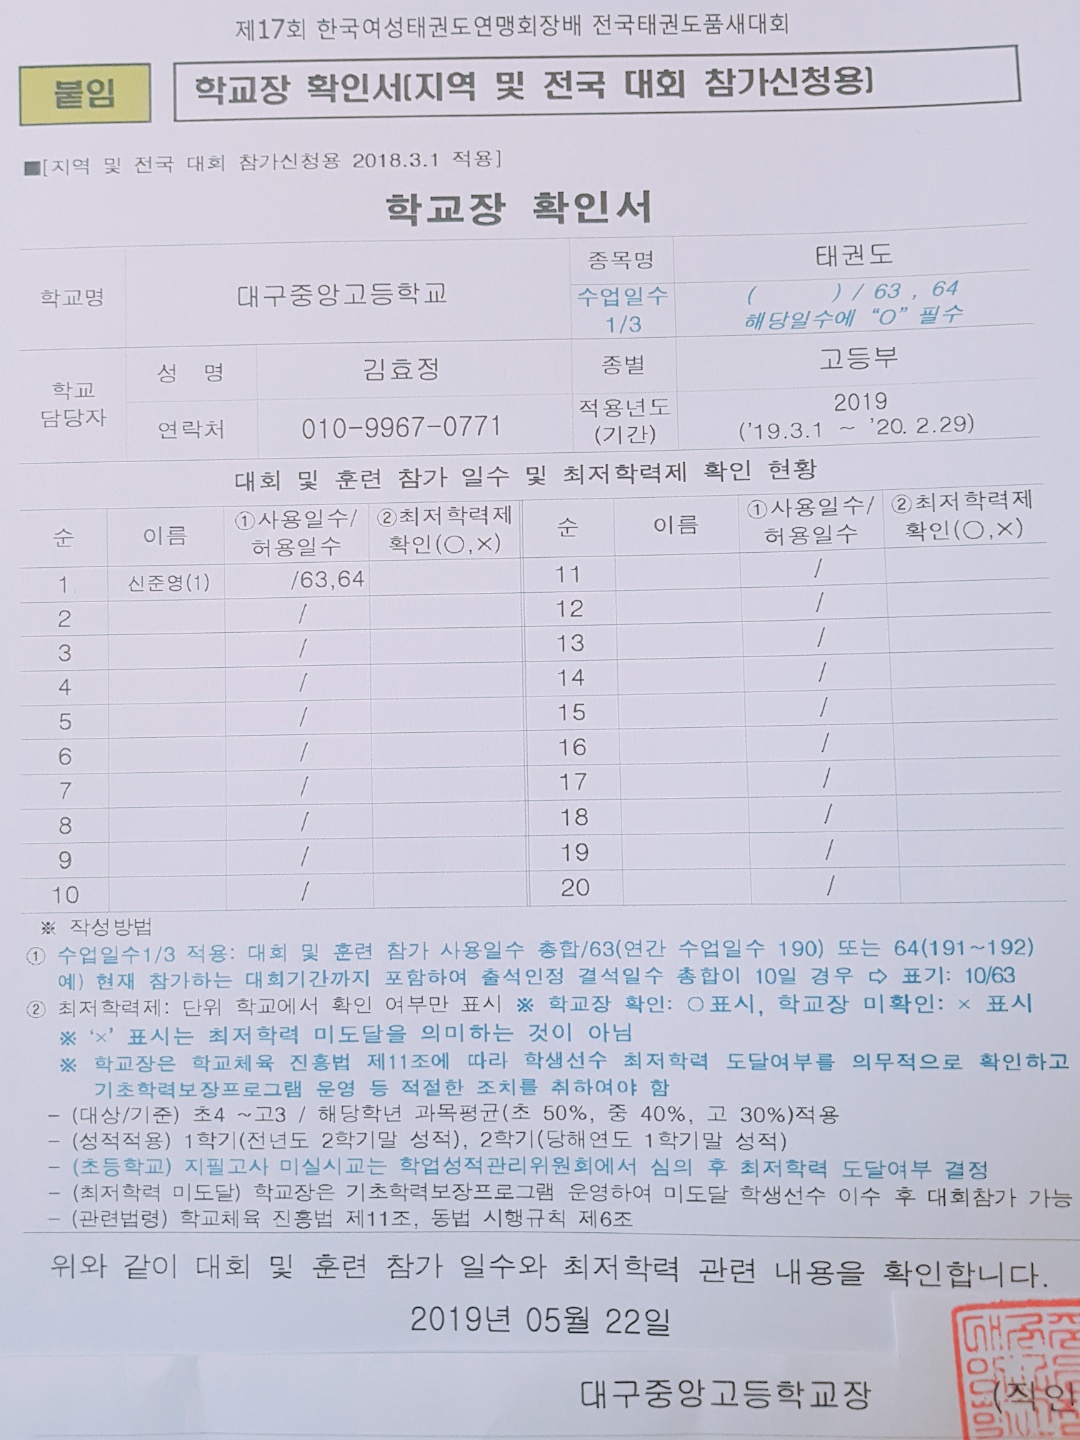 제17회 한국여성태권도연맹회장배 전국태권도품새대회
붙임
학교장 확인서(지역 및 전국 대회 참가신청용)
■[지역 및 전국 대회 참가신청용 2018.3.1 적용]
학교장 확인서
학교명
대구중앙고등학교
종목명
태권도
수업일수
1/3
( ) / 63 , 64
해당일수에 “O” 필수
학교
담당자
성 명
김효정
종별
고등부
연락처
010-9967-0771
적용년도
(기간)
2019
('19.3.1 ~ '20. 2.29)
대회 및 훈련 참가 일수 및 최저학력제 확인 현황
순 이름 ①사용일수/ ②최저학력제 순 이름 ①사용일수/ ②최저학력제
허용일수 확인(○,×) 허용일수 확인(○,×)
1 신준영(1) /63,64 11 /
2 / 12 /
3 / 13 /
4 / 14 /
5 / 15 /
6 / 16 /
7 / 17 /
8 / 18 /
9 / 19 /
10 / 20 /
※ 작성방법
① 수업일수1/3 적용: 대회 및 훈련 참가 사용일수 총합/63(연간 수업일수 190) 또는 64(191~192)
예) 현재 참가하는 대회기간까지 포함하여 출석인정 결석일수 총합이 10일 경우 ⇨ 표기: 10/63
② 최저학력제: 단위 학교에서 확인 여부만 표시 ※ 학교장 확인: ○표시, 학교장 미확인: × 표시
※ ‘×’ 표시는 최저학력 미도달을 의미하는 것이 아님
※ 학교장은 학교체육 진흥법 제11조에 따라 학생선수 최저학력 도달여부를 의무적으로 확인하고
기초학력보장프로그램 운영 등 적절한 조치를 취하여야 함
- (대상/기준) 초4 ~고3 / 해당학년 과목평균(초 50%, 중 40%, 고 30%)적용
- (성적적용) 1학기(전년도 2학기말 성적), 2학기(당해연도 1학기말 성적)
- (초등학교) 지필고사 미실시교는 학업성적관리위원회에서 심의 후 최저학력 도달여부 결정
- (최저학력 미도달) 학교장은 기초학력보장프로그램 운영하여 미도달 학생선수 이수 후 대회참가 가능
- (관련법령) 학교체육 진흥법 제11조, 동법 시행규칙 제6조
위와 같이 대회 및 훈련 참가 일수와 최저학력 관련 내용을 확인합니다.
2019년 05월 22일
대구중앙고등학교장 (직인